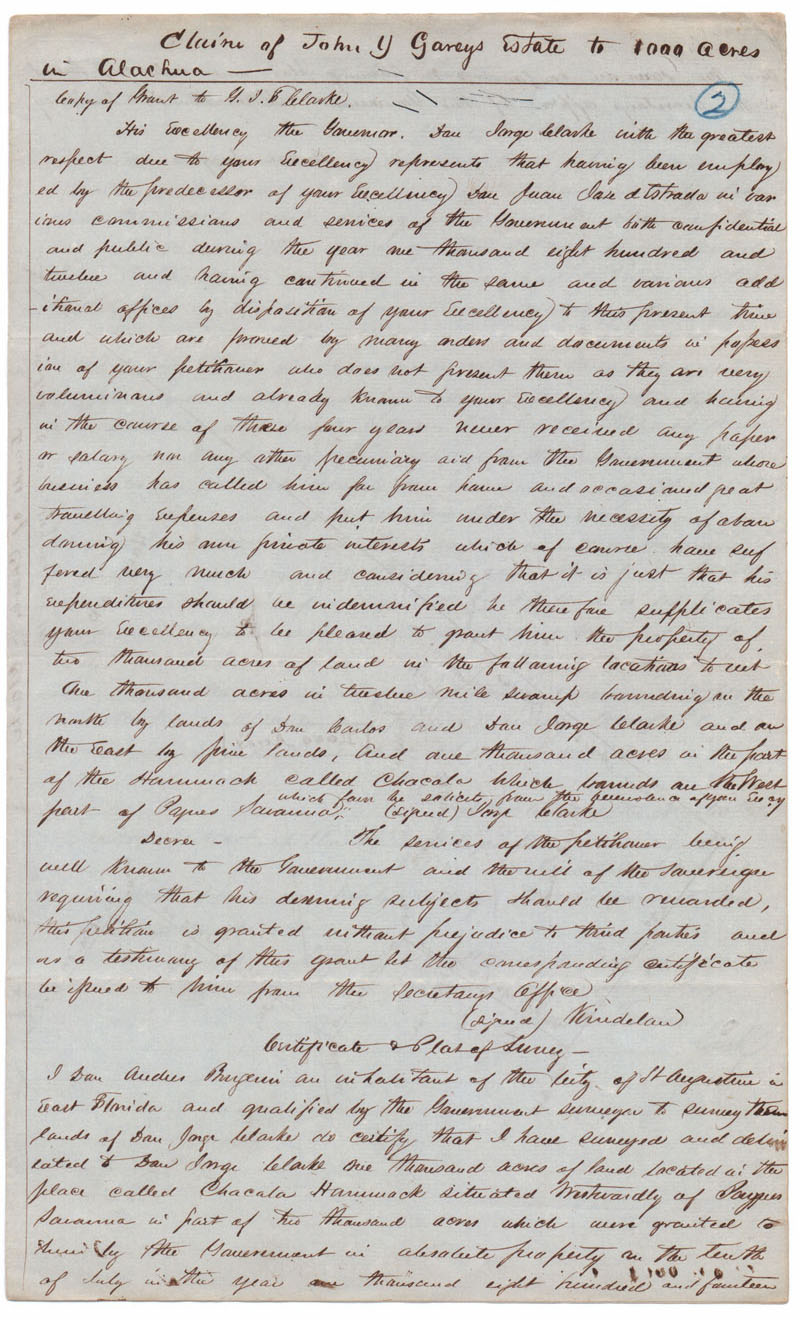 Claim of John Y Gareys Estate to 1000 acres
in Alachua —
Copy of Grant to G. I. F Clarke.
2
His Excellency the Governor. Don Jorge Clarke with the greatest
respect due to your Excellency represents that having been employ
ed by the predecessor of your Excellency Don Juan José d Estrada in var
ious commissions and services of the Government both confidential
and public during the year one thousand eight hundred and
twelve and having continued in the same and various add
-itional offices by disposition of your Excellency to this present time
and which are proved by many orders and documents in possess
ion of your petitioner who does not present them as they are very
voluminous and already known to your Excellency and having
in the course of these four years never received any paper
or salary nor any other pecuniary aid from the Government whose
business has called him far from home and occasioned great
travelling expenses and put him under the necessity of aban
doning his own private interests which of course have suf
fered very much and considering that it is just that his
expenditures should be indemnified he therefore supplicates
your Excellency to be pleased to grant him the property of
two thousand acres of land in the following locations to wit
One thousand acres in twelve mile swamp bounding on the
north by lands of Don Carlos and Don Jorge Clarke and on
the East by pine lands, And one thousand acres in the part
of the Hammock called Chacala which bounds on the West
part of Paynes Savanna; which favor he solicits from the benevolence of your Excy
(signed) Jorge Clarke
Decree – The services of the petitioner being
well known to the Government and the will of the Sovereign
requiring that his deserving subjects should be rewarded,
this petition is granted without prejudice to third parties and
as a testimony of this grant let the corresponding certificate
be issued to him from the Secretarys Office
(signed) Kindelan
Certificate & Plat of Survey –
I Don Andres Burgevin an inhabitant of the City of St Augustine in
East Florida and qualified by the Government surveyor to survey them
lands of Don Jorge Clarke do certify that I have surveyed and delin
eated to Don Jorge Clarke one thousand acres of land located in the
place called Chacala Hammock situated Westwardly of Paynes
Savanna in part of two thousand acres which were granted to
them by the Government in absolute property on the tenth
of July in the year one thousand eight hundred and fourteen